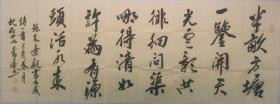 半畝方塘
一鑒開天
光雲影共
徘徊問渠
哪得清如
許為有源
頭活水來
朱熹觀書有感
詩一首